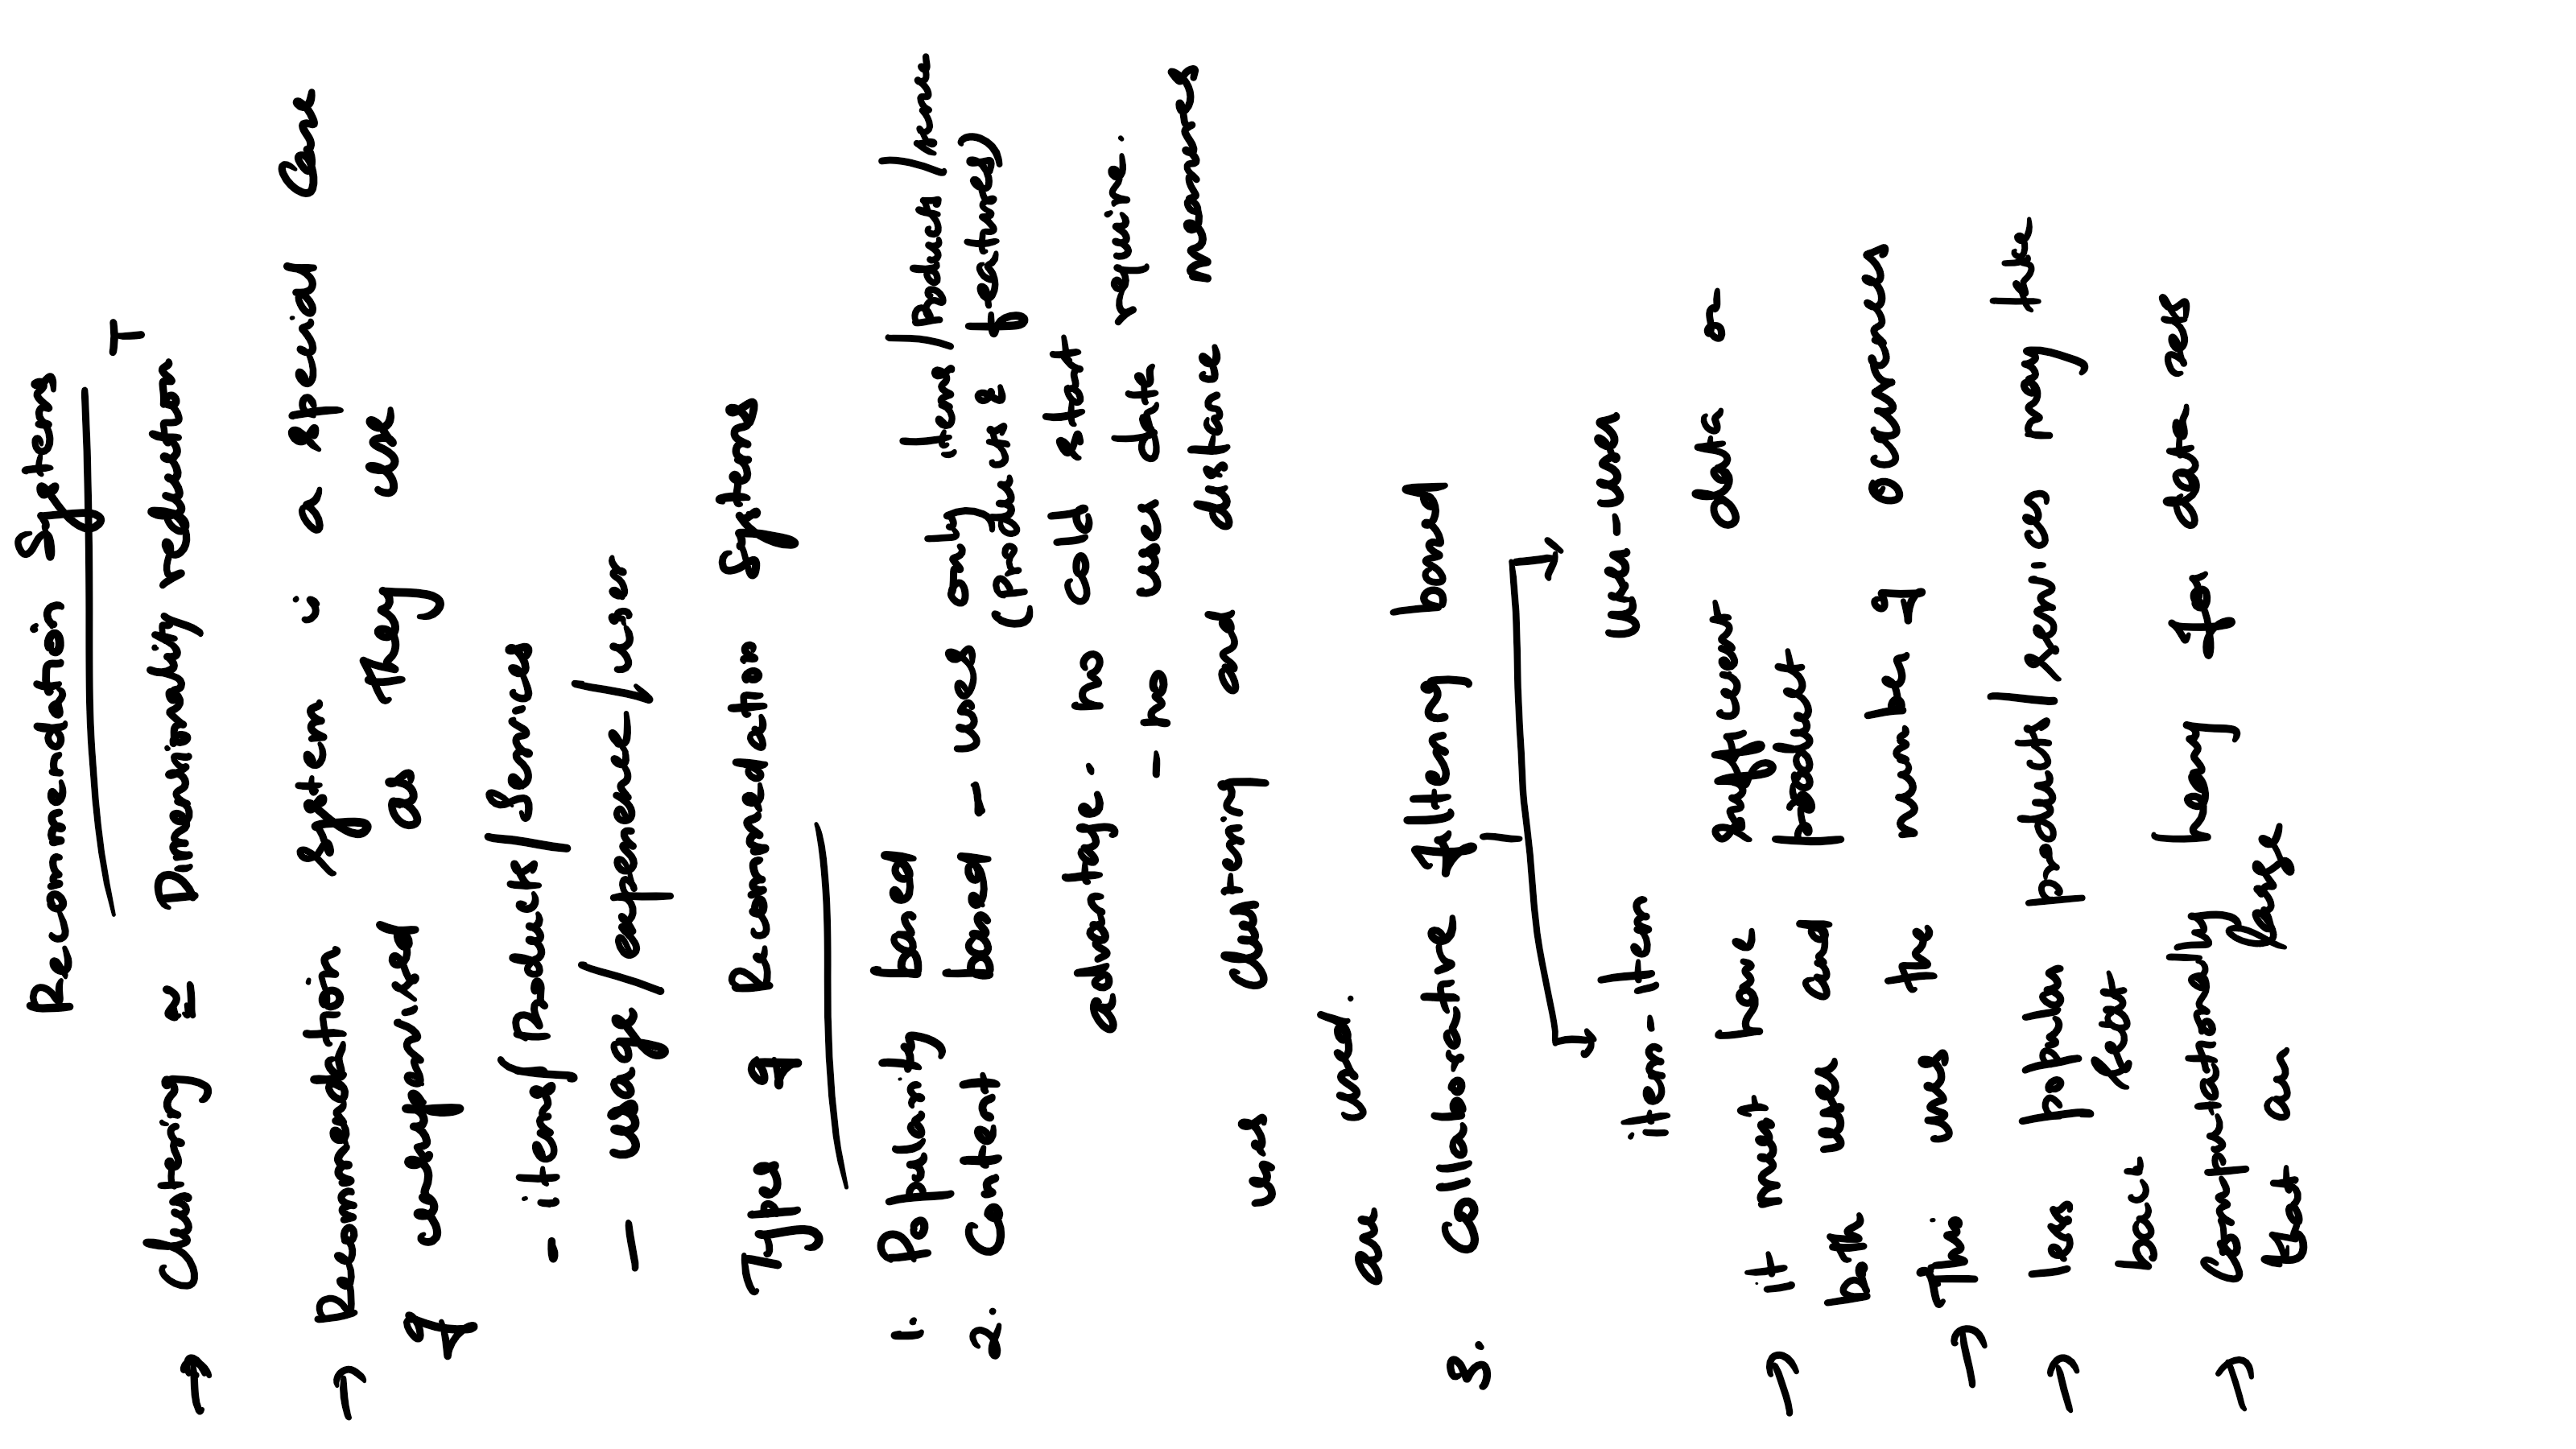 Recommendation Systems
→ Clustering ≃ Dimensionality reduction T
→ Recommendation system is a special case
of unsupervised as they use
- items/Products/Services
- usage/experience/user
Types of Recommedation Systems
1. Popularity based
2. Content based - uses only items/Products/
(Products & features)
advantage. no cold start
- no user data require.
uses clustering and distance measures
are used.
3. Collaborative filtering based
item-item user-user
→ it must have sufficient data on
both user and product
→ This uses the number of occurences
→ less popular products/services may take
back seat
→ Computationally heavy for data sets
that are large